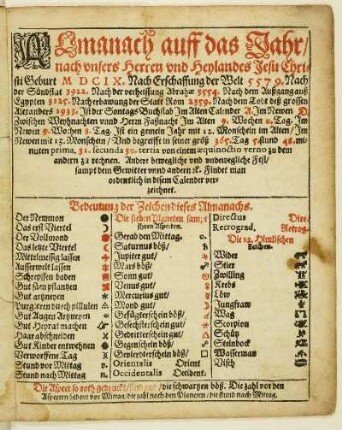 Almanach auff das Jahr/
nach vnsers Herren vnd Heylandes Jesu Chri-
sti Geburt M DCIX. Nach Erschaffung der Welt 5579. Nach
der Sündflut 3922. Nach der verheissung Abrahæ 3554. Nach dem Außgang auß
Egypten 3125. Nach erbawung der Statt Rom 2359. Nach dem Todt deß grossen
Alexanders 1933. Ist der Sontags Buchstab Im Alten Calender A. Im Newen D.
Zwischen Weyhnachten vnd Herrn Faßnacht Im Alten 9. Wochen 0. Tag. Im
Newen 9. Wochen 3. Tag. Ist ein gemein Jahr mit 12. Monschein im Alten/ Im
Newen mit 13. Monschein/ Vnd begreifft in seiner größ 365. Tag 5 stund 48. mi-
nuten prima, 31. secunda 30. tertia von einem æquinoctio verno zu dem
andern zu rechnen. Andere bewegliche vnd vnbewegliche Fest/
sampt dem Gewitter vnnd andern &c. Findet man
ordentlich in disem Calender ver-
zeichnet.
Bedeutung der Zeichen dieses Almanachs.
Der Newmon
Das erst Viertel
Der Vollmond
Das letzte Viertel
Mittelmessig lassen
Außerwelt lassen
Schrepffen baden
Gut säen pflantzen
Gut artzneyen
Purgieren durch pillulen
Gut Augen Artzneyen
Gut Heyrat machen
Haar abschneiden
Gut Kinder entwehnen
Verworffene Tag
Stund vor Mittag v.
Stund nach Mittag n.
Die sieben Planeten samt
ihren Aspecten.
Gerad den Mittag. o.
Saturnus böß/ ♄
Jupiter gut/ ♃
Mars böß/ ♂
Sonn gut/ ☉
Venus gut/ ♀
Mercurius gut/ ☿
Mond gut/ ☽
Gesägterschein böß/ ☌
Gesechsterschein gut/ ⚹
Gevierterschein böß/ □
Gedritterschein gut/ △
Gegenschein böß/ ☍
Orientalis Orient
Occidentalis Occident:
Directus Dire.
Retrograd, Retrog.
Die 12. Himlischen
Zeichen.
Wider
Stier
Zwilling
Krebs
Löw
Jungfraw
Wag
Scorpion
Schütz
Steinbock
Wasserman
Visch
Die Aspect so roth gedruckt/ sind gut/ die schwartzen böß. Die zahl vor den
Aspecten bedeut vor Mittag, die zahl nach den Planeten, die stund nach Mittag.